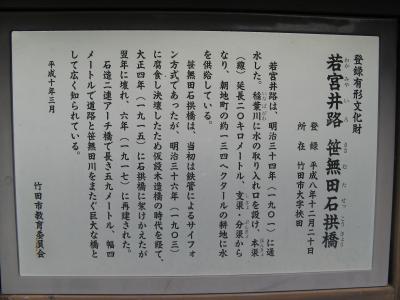 登録有形文化財
若宮井路 笹無田石拱橋
わかみやいろ ささむたせっこうきょう
登録 平成八年十二月二十日
所在 竹田市大字挾田
若宮井路は、明治三十四年（一九〇一）に通
水した。稲葉川に水の取り入れ口を設け、本渠
（線）延長二〇キロメートル、支渠・分渠から
なり、朝地町の約一三四ヘクタールの耕地に水
を供給している。
笹無田石拱橋は、当初は鉄管によるサイフォ
ン方式であったが、明治三十六年（一九〇三）
に腐食し決壊したため仮設木造橋の時代を経て、
大正四年（一九一五）に石拱橋に架けかえたが
翌年に壊れ、六年（一九一七）に再建された。
石造二連アーチ橋で長さ五九メートル、幅四
メートルで道路と笹無田川をまたぐ巨大な橋と
して広く知られている。
平成十年三月
竹田市教育委員会